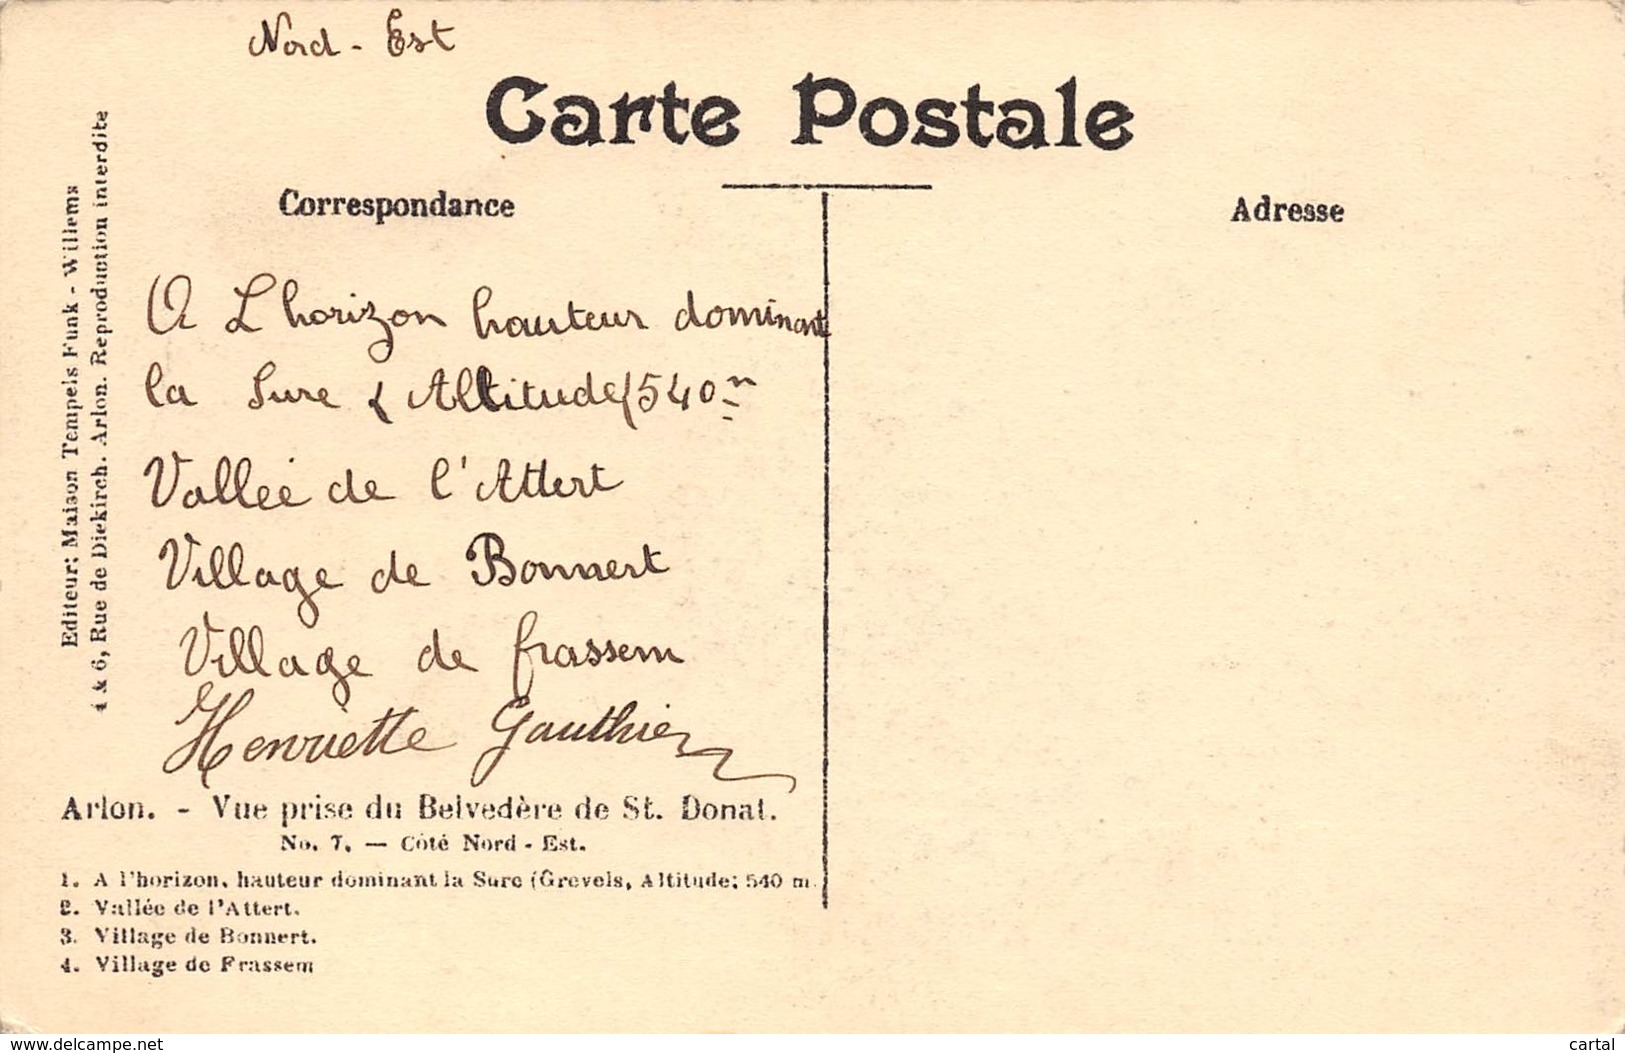 Nord - Est
Carte Postale
Correspondance
Adresse
Editeur: Maison Tempels Funk - Willems
4 & 6, Rue de Diekirch. Arlon. Reproduction interdite
A L'horizon hauteur dominant
la Sure ( Altitude 540 m
Vallée de l'Attert
Village de Bonnert
Village de frassem
Henriette Gauthier
Arlon. - Vue prise du Belvedère de St. Donat.
No. 7. — Côté Nord - Est.
1. A l'horizon, hauteur dominant la Sure (Grevels, Altitude: 540 m.)
2. Vallée de l'Attert.
3. Village de Bonnert.
4. Village de Frassem
www.delcampe.net
cartal